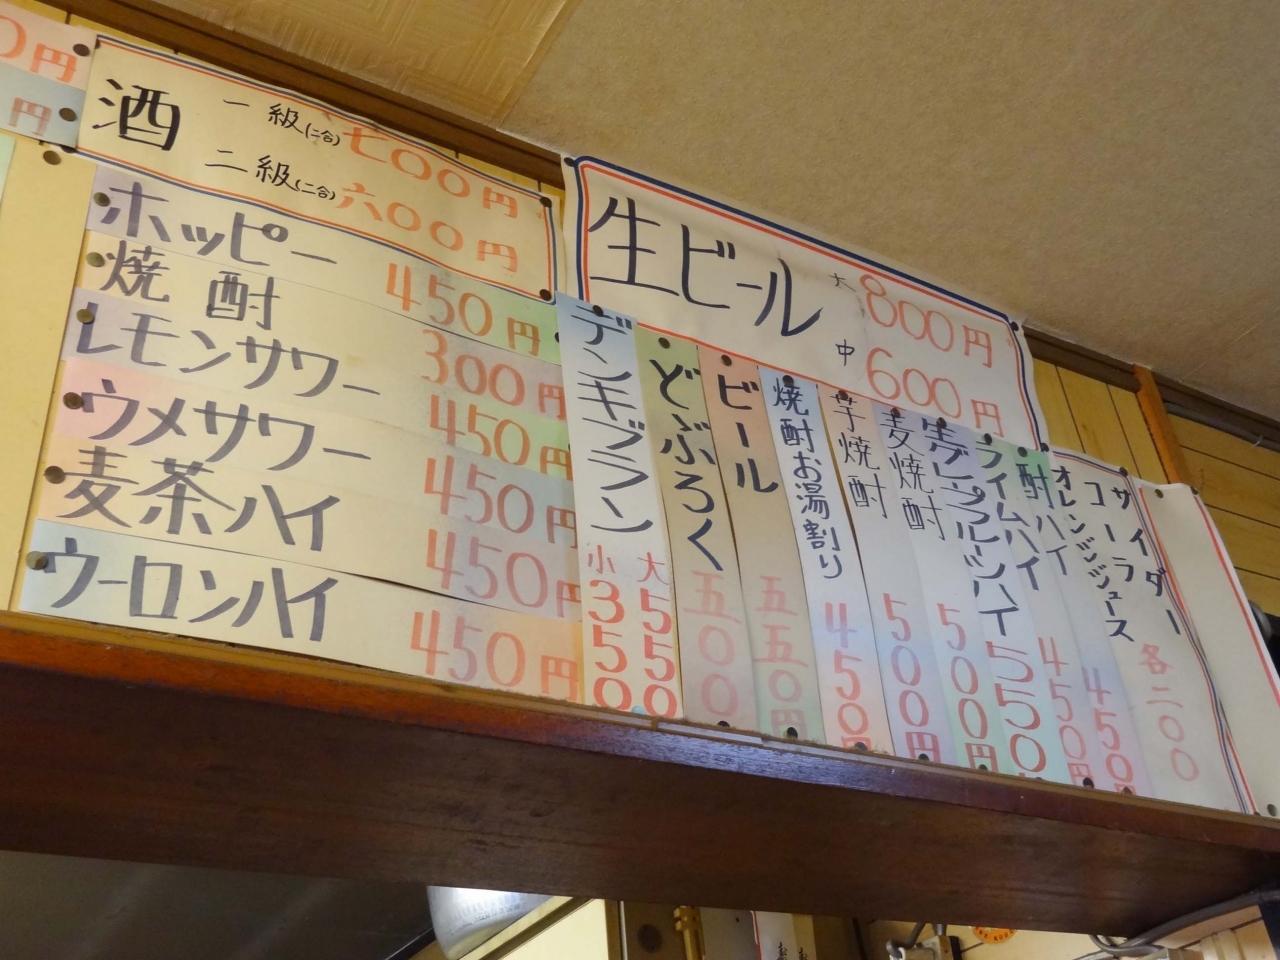 円
円
酒
一級(二合)七〇〇円
二級(二合)六〇〇円
ホッピー 450円
焼酎 300円
レモンサワー 450円
ウメサワー 450円
麦茶ハイ 450円
ウーロンハイ 450円
生ビール
大 800円
中 600円
デンキブラン 小350 大550
どぶろく 五〇〇
ビール 五五〇円
焼酎お湯割り 450円
芋焼酎 500円
麦焼酎 500円
生グレープフルーツハイ 550円
ライムハイ 450円
酎ハイ 450円
オレンジジュース
コーラ
サイダー
各二〇〇